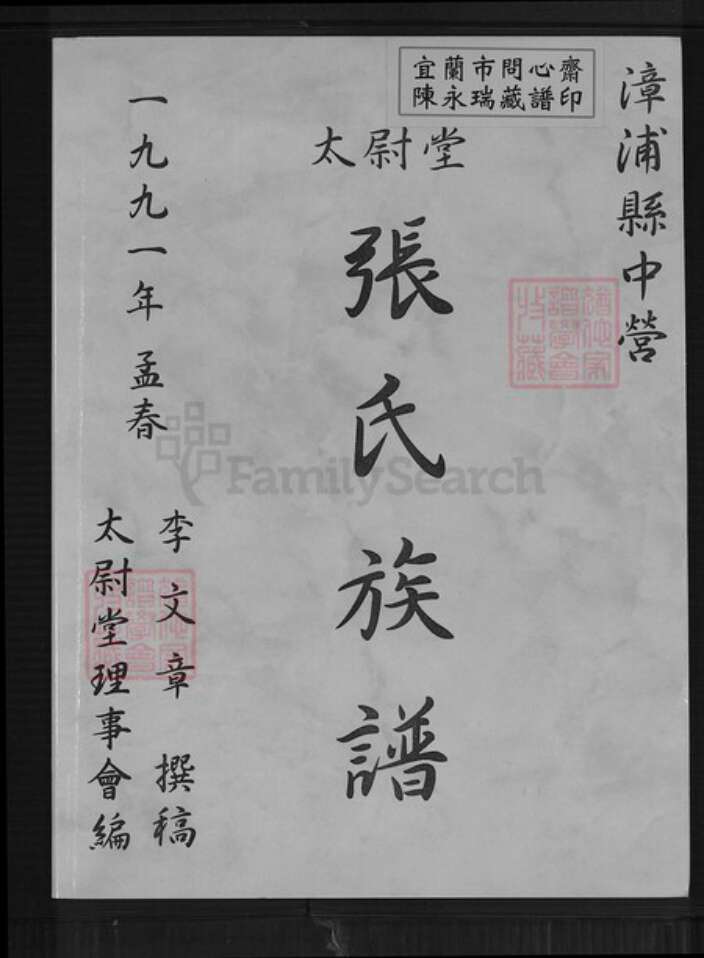 宜蘭市問心齋
陳永瑞藏譜印
漳浦縣中營
太尉堂
張氏族譜
一九九一年 孟春
李文章 撰稿
太尉堂理事會編
FamilySearch